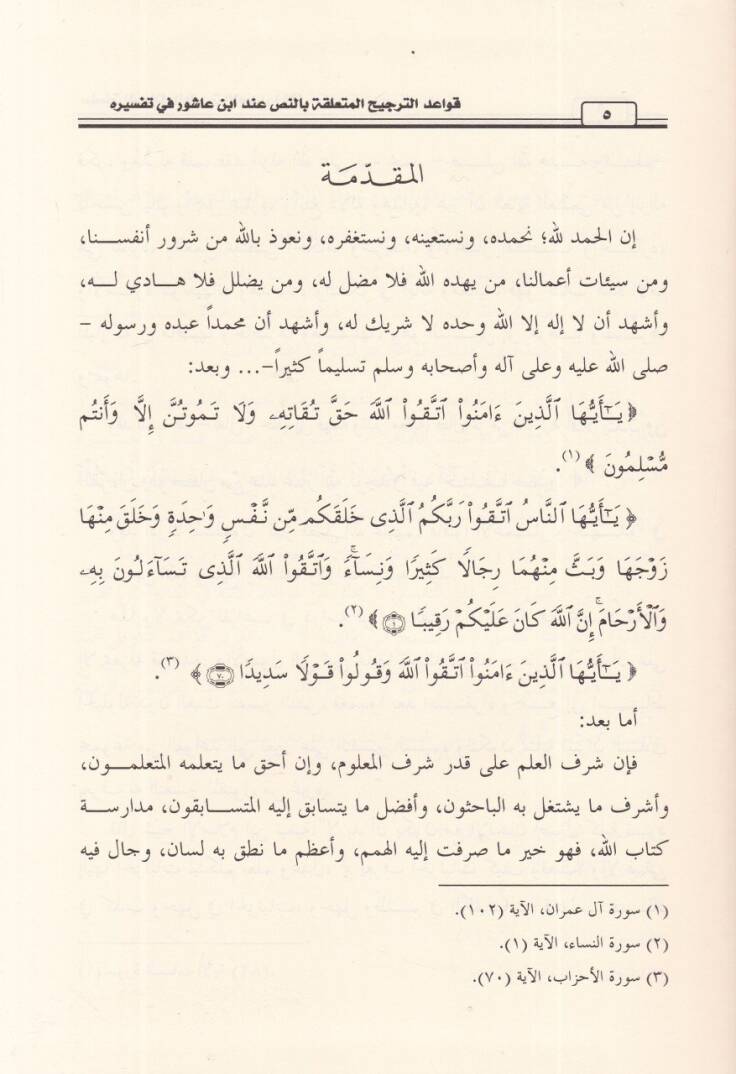 ٥
قواعد الترجيح المتعلقة بالنص عند ابن عاشور في تفسيره
المقدّمة
إن الحمد لله؛ نحمده، ونستعينه، ونستغفره، ونعوذ بالله من شرور أنفســنا،
ومن سيئات أعمالنا، من يهده الله فلا مضل له، ومن يضلل فلا هــادي لــه،
وأشهد أن لا إله إلا الله وحده لا شريك له، وأشهد أن محمداً عبده ورسوله –
صلى الله عليه وعلى آله وأصحابه وسلم تسليماً كثيراً–... وبعد:
﴿ يَٰٓأَيُّهَا ٱلَّذِينَ ءَامَنُوا۟ ٱتَّقُوا۟ ٱللَّهَ حَقَّ تُقَاتِهِۦ وَلَا تَمُوتُنَّ إِلَّا وَأَنتُم
مُّسْلِمُونَ ﴾(١).
﴿ يَٰٓأَيُّهَا ٱلنَّاسُ ٱتَّقُوا۟ رَبَّكُمُ ٱلَّذِى خَلَقَكُم مِّن نَّفْسٍ وَٰحِدَةٍ وَخَلَقَ مِنْهَا
زَوْجَهَا وَبَثَّ مِنْهُمَا رِجَالًا كَثِيرًا وَنِسَآءً ۚ وَٱتَّقُوا۟ ٱللَّهَ ٱلَّذِى تَسَآءَلُونَ بِهِۦ
وَٱلْأَرْحَامَ ۚ إِنَّ ٱللَّهَ كَانَ عَلَيْكُمْ رَقِيبًا ١ ﴾(٢).
﴿ يَٰٓأَيُّهَا ٱلَّذِينَ ءَامَنُوا۟ ٱتَّقُوا۟ ٱللَّهَ وَقُولُوا۟ قَوْلًا سَدِيدًا ٧٠ ﴾(٣).
أما بعد:
فإن شرف العلم على قدر شرف المعلوم، وإن أحق ما يتعلمه المتعلمــون،
وأشرف ما يشتغل به الباحثون، وأفضل ما يتسابق إليه المتسـابقون، مدارسـة
كتاب الله، فهو خير ما صرفت إليه الهمم، وأعظم ما نطق به لسان، وجال فيه
(١) سورة آل عمران، الآية (١٠٢).
(٢) سورة النساء، الآية (١).
(٣) سورة الأحزاب، الآية (٧٠).